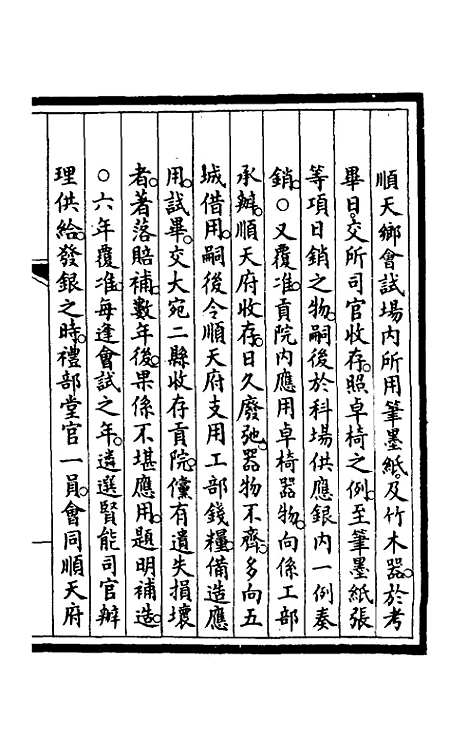 順天鄉會試場內所用筆墨紙。及竹木器。於考
畢日。交所司官收存。照卓椅之例。至筆墨紙張
等項日銷之物。嗣後於科場供應銀內一例奏
銷。○又覆准。貢院內應用卓椅器物。向係工部
承辦。順天府收存。日久廢弛。器物不齊。多向五
城借用。嗣後令順天府支用工部錢糧。備造應
用。試畢。交大宛二縣收存貢院。儻有遺失損壞
者。著落賠補。數年後。果係不堪應用。題明補造。
○六年覆准。每逢會試之年。遴選賢能司官辦
理供給。發銀之時。禮部堂官一員。會同順天府